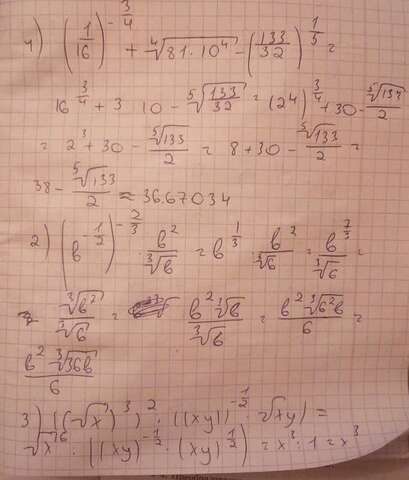 1) (1/16)^(-3/4) + ⁴√(81·10⁴) - (133/32)^(1/5) =
16^(3/4) + 3 10 - ⁵√(133/32) = (2⁴)^(3/4) + 30 - ⁵√133/2
= 2³ + 30 - ⁵√133/2 = 8 + 30 - ⁵√133/2 =
38 - ⁵√133/2 ≈ 36.67034
2) (b^(-1/2))^(-2/3) · b²/³√b = b^(1/3) · b²/³√6 = b^(7/3)/³√6 =
³√b²/³√6 = b² ³√b/³√6 = b² ³√(6²b)/6 =
b² ³√(36b)/6
3) ((√x)³)² : ((xy)^(-1/2) · √xy) =
√x⁶ : ((xy)^(-1/2) · (xy)^(1/2)) = x³ : 1 = x³